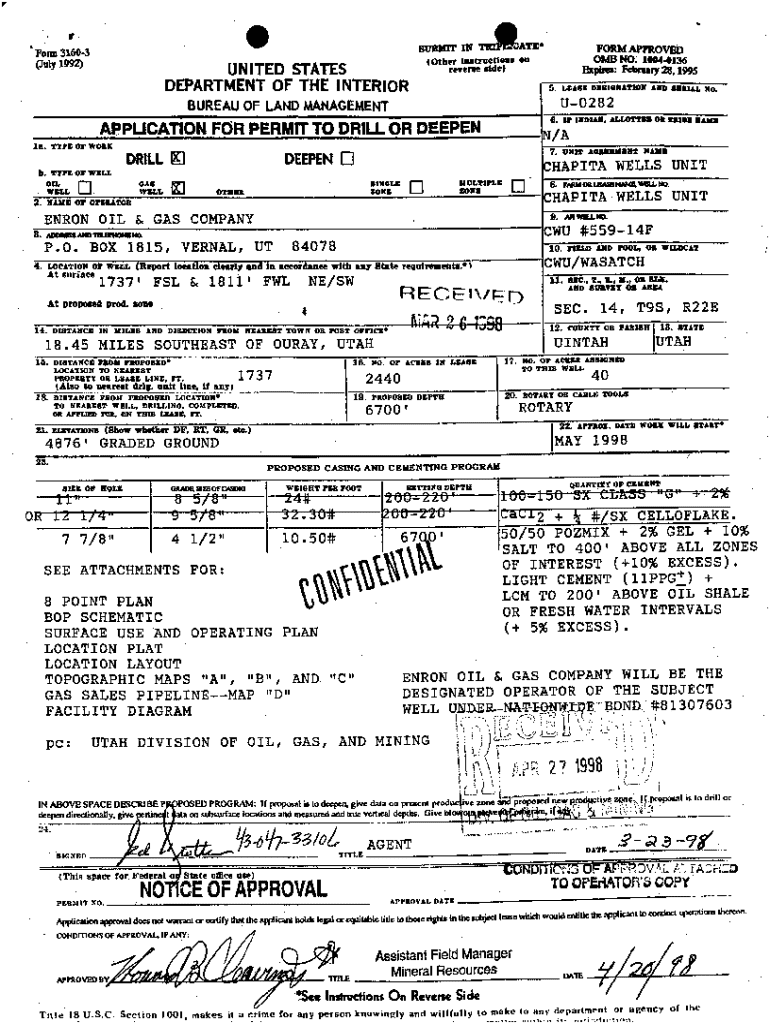 Form 3160-3
(July 1992)
SUBMIT IN TRIPLICATE*
(Other instructions on
reverse side)
FORM APPROVED
OMB NO. 1004-0136
Expires: February 28, 1995
UNITED STATES
DEPARTMENT OF THE INTERIOR
BUREAU OF LAND MANAGEMENT
5. LEASE DESIGNATION AND SERIAL NO.
U-0282
APPLICATION FOR PERMIT TO DRILL OR DEEPEN
6. IF INDIAN, ALLOTTEE OR TRIBE NAME
N/A
1a. TYPE OF WORK
DRILL X DEEPEN
7. UNIT AGREEMENT NAME
CHAPITA WELLS UNIT
b. TYPE OF WELL
OIL WELL GAS WELL X OTHER SINGLE ZONE MULTIPLE ZONE
8. FARM OR LEASE NAME, WELL NO.
CHAPITA WELLS UNIT
2. NAME OF OPERATOR
ENRON OIL & GAS COMPANY
9. API WELL NO.
CWU #559-14F
3. ADDRESS AND TELEPHONE NO.
P.O. BOX 1815, VERNAL, UT 84078
10. FIELD AND POOL, OR WILDCAT
CWU/WASATCH
4. LOCATION OF WELL (Report location clearly and in accordance with any State requirements.*)
At surface
1737' FSL & 1811' FWL NE/SW
At proposed prod. zone
RECEIVED
MAR 26 1998
11. SEC., T., R., M., OR BLK.
AND SURVEY OR AREA
SEC. 14, T9S, R22E
14. DISTANCE IN MILES AND DIRECTION FROM NEAREST TOWN OR POST OFFICE*
18.45 MILES SOUTHEAST OF OURAY, UTAH
12. COUNTY OR PARISH 13. STATE
UINTAH UTAH
15. DISTANCE FROM PROPOSED*
LOCATION TO NEAREST
PROPERTY OR LEASE LINE, FT.
(Also to nearest drlg. unit line, if any)
1737
16. NO. OF ACRES IN LEASE
2440
17. NO. OF ACRES ASSIGNED
TO THIS WELL
40
18. DISTANCE FROM PROPOSED LOCATION*
TO NEAREST WELL, DRILLING, COMPLETED,
OR APPLIED FOR, ON THIS LEASE, FT.
19. PROPOSED DEPTH
6700'
20. ROTARY OR CABLE TOOLS
ROTARY
21. ELEVATIONS (Show whether DF, RT, GR, etc.)
4876' GRADED GROUND
22. APPROX. DATE WORK WILL START*
MAY 1998
23.
PROPOSED CASING AND CEMENTING PROGRAM
SIZE OF HOLE GRADE, SIZE OF CASING WEIGHT PER FOOT SETTING DEPTH QUANTITY OF CEMENT
11" 8 5/8" 24# 200-220' 100-150 SX CLASS "G" + 2%
OR 12 1/4" 9 5/8" 32.30# 200-220' CaCl2 + ¼ #/SX CELLOFLAKE.
7 7/8" 4 1/2" 10.50# 6700' 50/50 POZMIX + 2% GEL + 10%
SALT TO 400' ABOVE ALL ZONES
OF INTEREST (+10% EXCESS).
LIGHT CEMENT (11PPG±) +
LCM TO 200' ABOVE OIL SHALE
OR FRESH WATER INTERVALS
(+ 5% EXCESS).
CONFIDENTIAL
SEE ATTACHMENTS FOR:
8 POINT PLAN
BOP SCHEMATIC
SURFACE USE AND OPERATING PLAN
LOCATION PLAT
LOCATION LAYOUT
TOPOGRAPHIC MAPS "A", "B", AND "C"
GAS SALES PIPELINE--MAP "D"
FACILITY DIAGRAM
ENRON OIL & GAS COMPANY WILL BE THE
DESIGNATED OPERATOR OF THE SUBJECT
WELL UNDER NATIONWIDE BOND #81307603
pc: UTAH DIVISION OF OIL, GAS, AND MINING
RECEIVED
APR 27 1998
IN ABOVE SPACE DESCRIBE PROPOSED PROGRAM: If proposal is to deepen, give data on present productive zone and proposed new productive zone. If proposal is to drill or
deepen directionally, give pertinent data on subsurface locations and measured and true vertical depths. Give blowout preventer program, if any.
& MINING
24.
43-047-33106
SIGNED TITLE AGENT DATE 3-23-98
(This space for Federal or State office use)
NOTICE OF APPROVAL
CONDITIONS OF APPROVAL ATTACHED
TO OPERATOR'S COPY
PERMIT NO. APPROVAL DATE
Application approval does not warrant or certify that the applicant holds legal or equitable title to those rights in the subject lease which would entitle the applicant to conduct operations thereon.
CONDITIONS OF APPROVAL, IF ANY:
APPROVED BY TITLE Assistant Field Manager
Mineral Resources DATE 4/20/98
*See Instructions On Reverse Side
Title 18 U.S.C. Section 1001, makes it a crime for any person knowingly and willfully to make to any department or agency of the